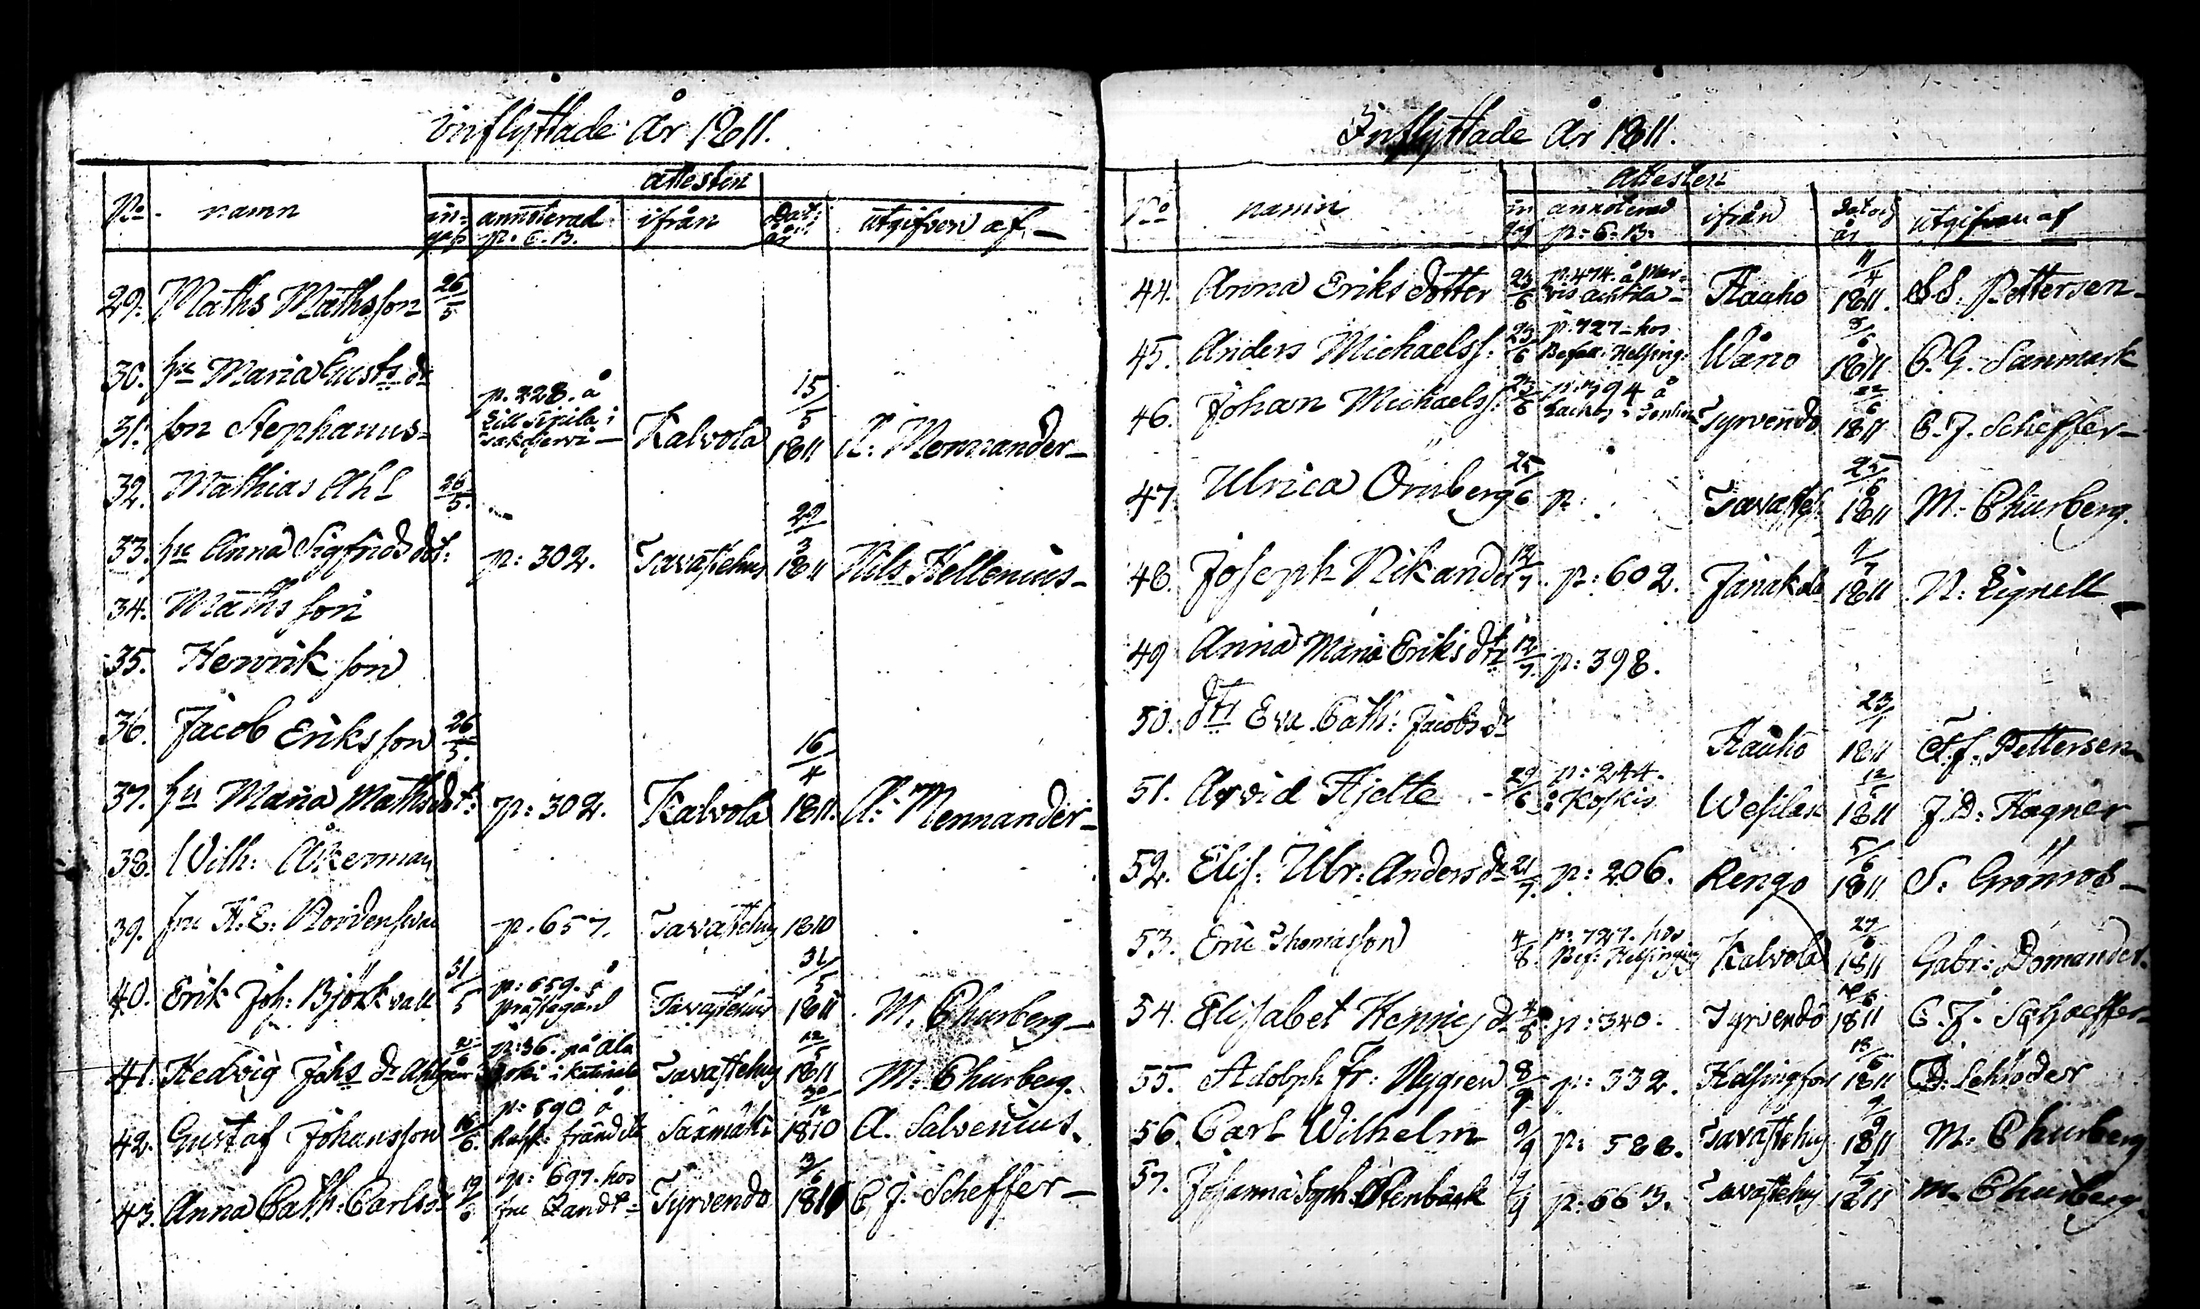 inflyttade år 1811.
attesten
No. namn in- annoterad ifrån Dat: utgifven af
gif. p. C. B. år
29. Maths Mathsson 26/5
30. hu Maria Gustfs dr
31. son Stephanus p. 228. å Lill Sipila i Kalvola 15/5 1811 A: Mennander
32. Mathias Ahl 26/5.
33. hu Anna Sigfrids dot: p: 302. Tavastehus 29/3 1811 Nils Hellenius
34. Maths son
35. Henrik son
36. Jacob Eriksson 26/5.
37. hu Maria Mathsdot: p: 302. Kalvola 16/4 1811. A: Mennander
38. Wilh: Åkerman
39. fru H. E. p. 657. Tavastehus 1810
40. Erik Joh: Björkvall 31/5 p: 659. å prästegård Tavastehus 31/5 1811 M. Churberg
41. Hedvig Johs dr p: 36. på Ala i Tavastehus 12/5 1811 M: Churberg.
42. Gustaf Johansson 16/6. p: 590 å Saxmäki 30/12 1810 A. Salvenius.
43. Anna Cath: Carlsdr p: 697. hos fru Tyrvendo 13/6 1811 C. J. Scheffer
Inflyttade år 1811.
attesten
No namn in annoterad ifrån Dat och utgifven af
p: C: B: år
44. Anna Eriks dotter 23/6 p: 474. å Hauho 11/4 1811. Pettersen
45. Anders Michaelss: 23/6 p. 727 hos Befall: Helsing: Wåno 1811 C. G. Sanmark
46. Johan Michaelss: 23/6 å Tyrvendo 22/6 1811 C. J. Scheffer
47. Ulrica Örnberg 25/6 p: Tavasteh 25/6 1811 M: Churberg.
48. Joseph Nikander 12/7 p: 602. Janakala 1811 N: Lignell
49 Anna Maria Eriks dtr 12/7. p: 398.
50. dtr Eva Cath: Jacobs dr Hauho 23/1 1811 Pettersen
51. Arvid Hjelte 29/6 p: 244. i Koskis Wesilax 12/5 1811 J. D: Hagner
52. Elis. Ulr: Anders dr 21/7. p: 206. Rengo 5/6 1811 S: Grönros
53. Eric Thomasson 4/8. p: 727. hos Bef: Helsing Kalvola 27/6 1811 Gabr: Bomander.
54. Elisabet Henrics dr 4/8 p: 340. Tyrvendo 1811 C. J. Schaeffer
55. Adolph Fr: Nygren 8/9 p: 332. Helsingfors 18/6 1811 Schröder
56. Carl Wilhelm 9/9 p: 588. Tavastehus 9/9 1811 M: Churberg
57. Johanna Soph Stenbäck /9 p: 66 Tavastehus 1811 M. Churberg.